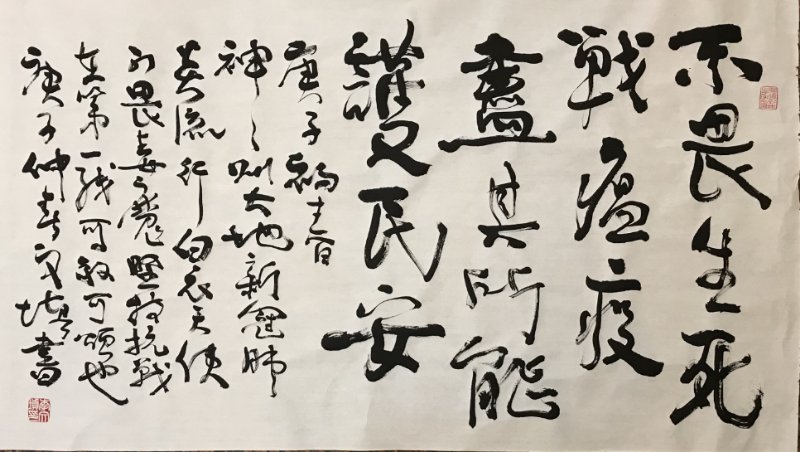 不畏生死
戰瘟疫
盡其所能
護民安
庚子
神州大地新冠肺
炎流行白衣天使
不畏毒魔堅持抗戰
在第一綫可敬可頌也
庚子仲春書